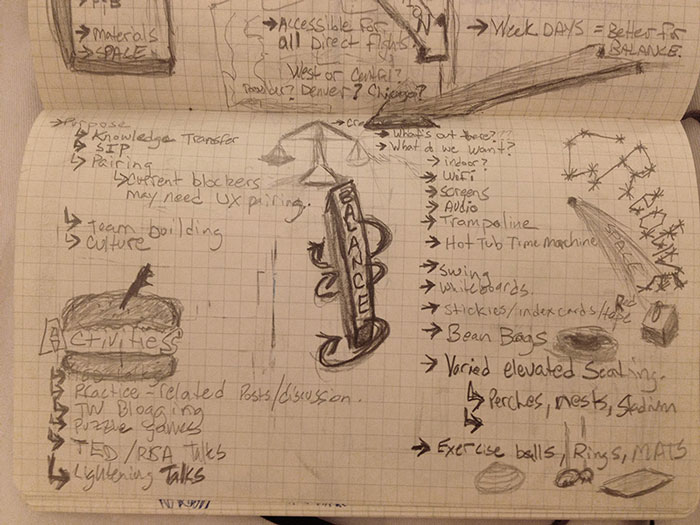 → materials
→ SPACE
→ Accessible for
all Direct flights.
West or Central?
Denver? Chicago?
→ WEEK DAYS = Better for
BALANCE.
→ Purpose
↳ Knowledge Transfer
↳ SIP
↳ Pairing
↳ Current blockers
may need UX pairing.
↳ Team building
↳ Culture
Activities
↳ Practice-related Posts/discussion.
↳ TW Blogging
↳ Puzzle Games
↳ TED/RSA Talks
↳ Lightening Talks
BALANCE
→ What's out there???
→ What do we want?
→ indoor?
→ WiFi
→ Screens
→ Audio
→ Trampoline
→ Hot Tub Time Machine
→ Swing
→ Whiteboards.
→ Stickies/index cards/tape
→ Bean Bags
→ Varied elevated Seating.
↳ Perches, nests, Stadium
↳
→ Exercise balls, Rings, MATS
SPACE